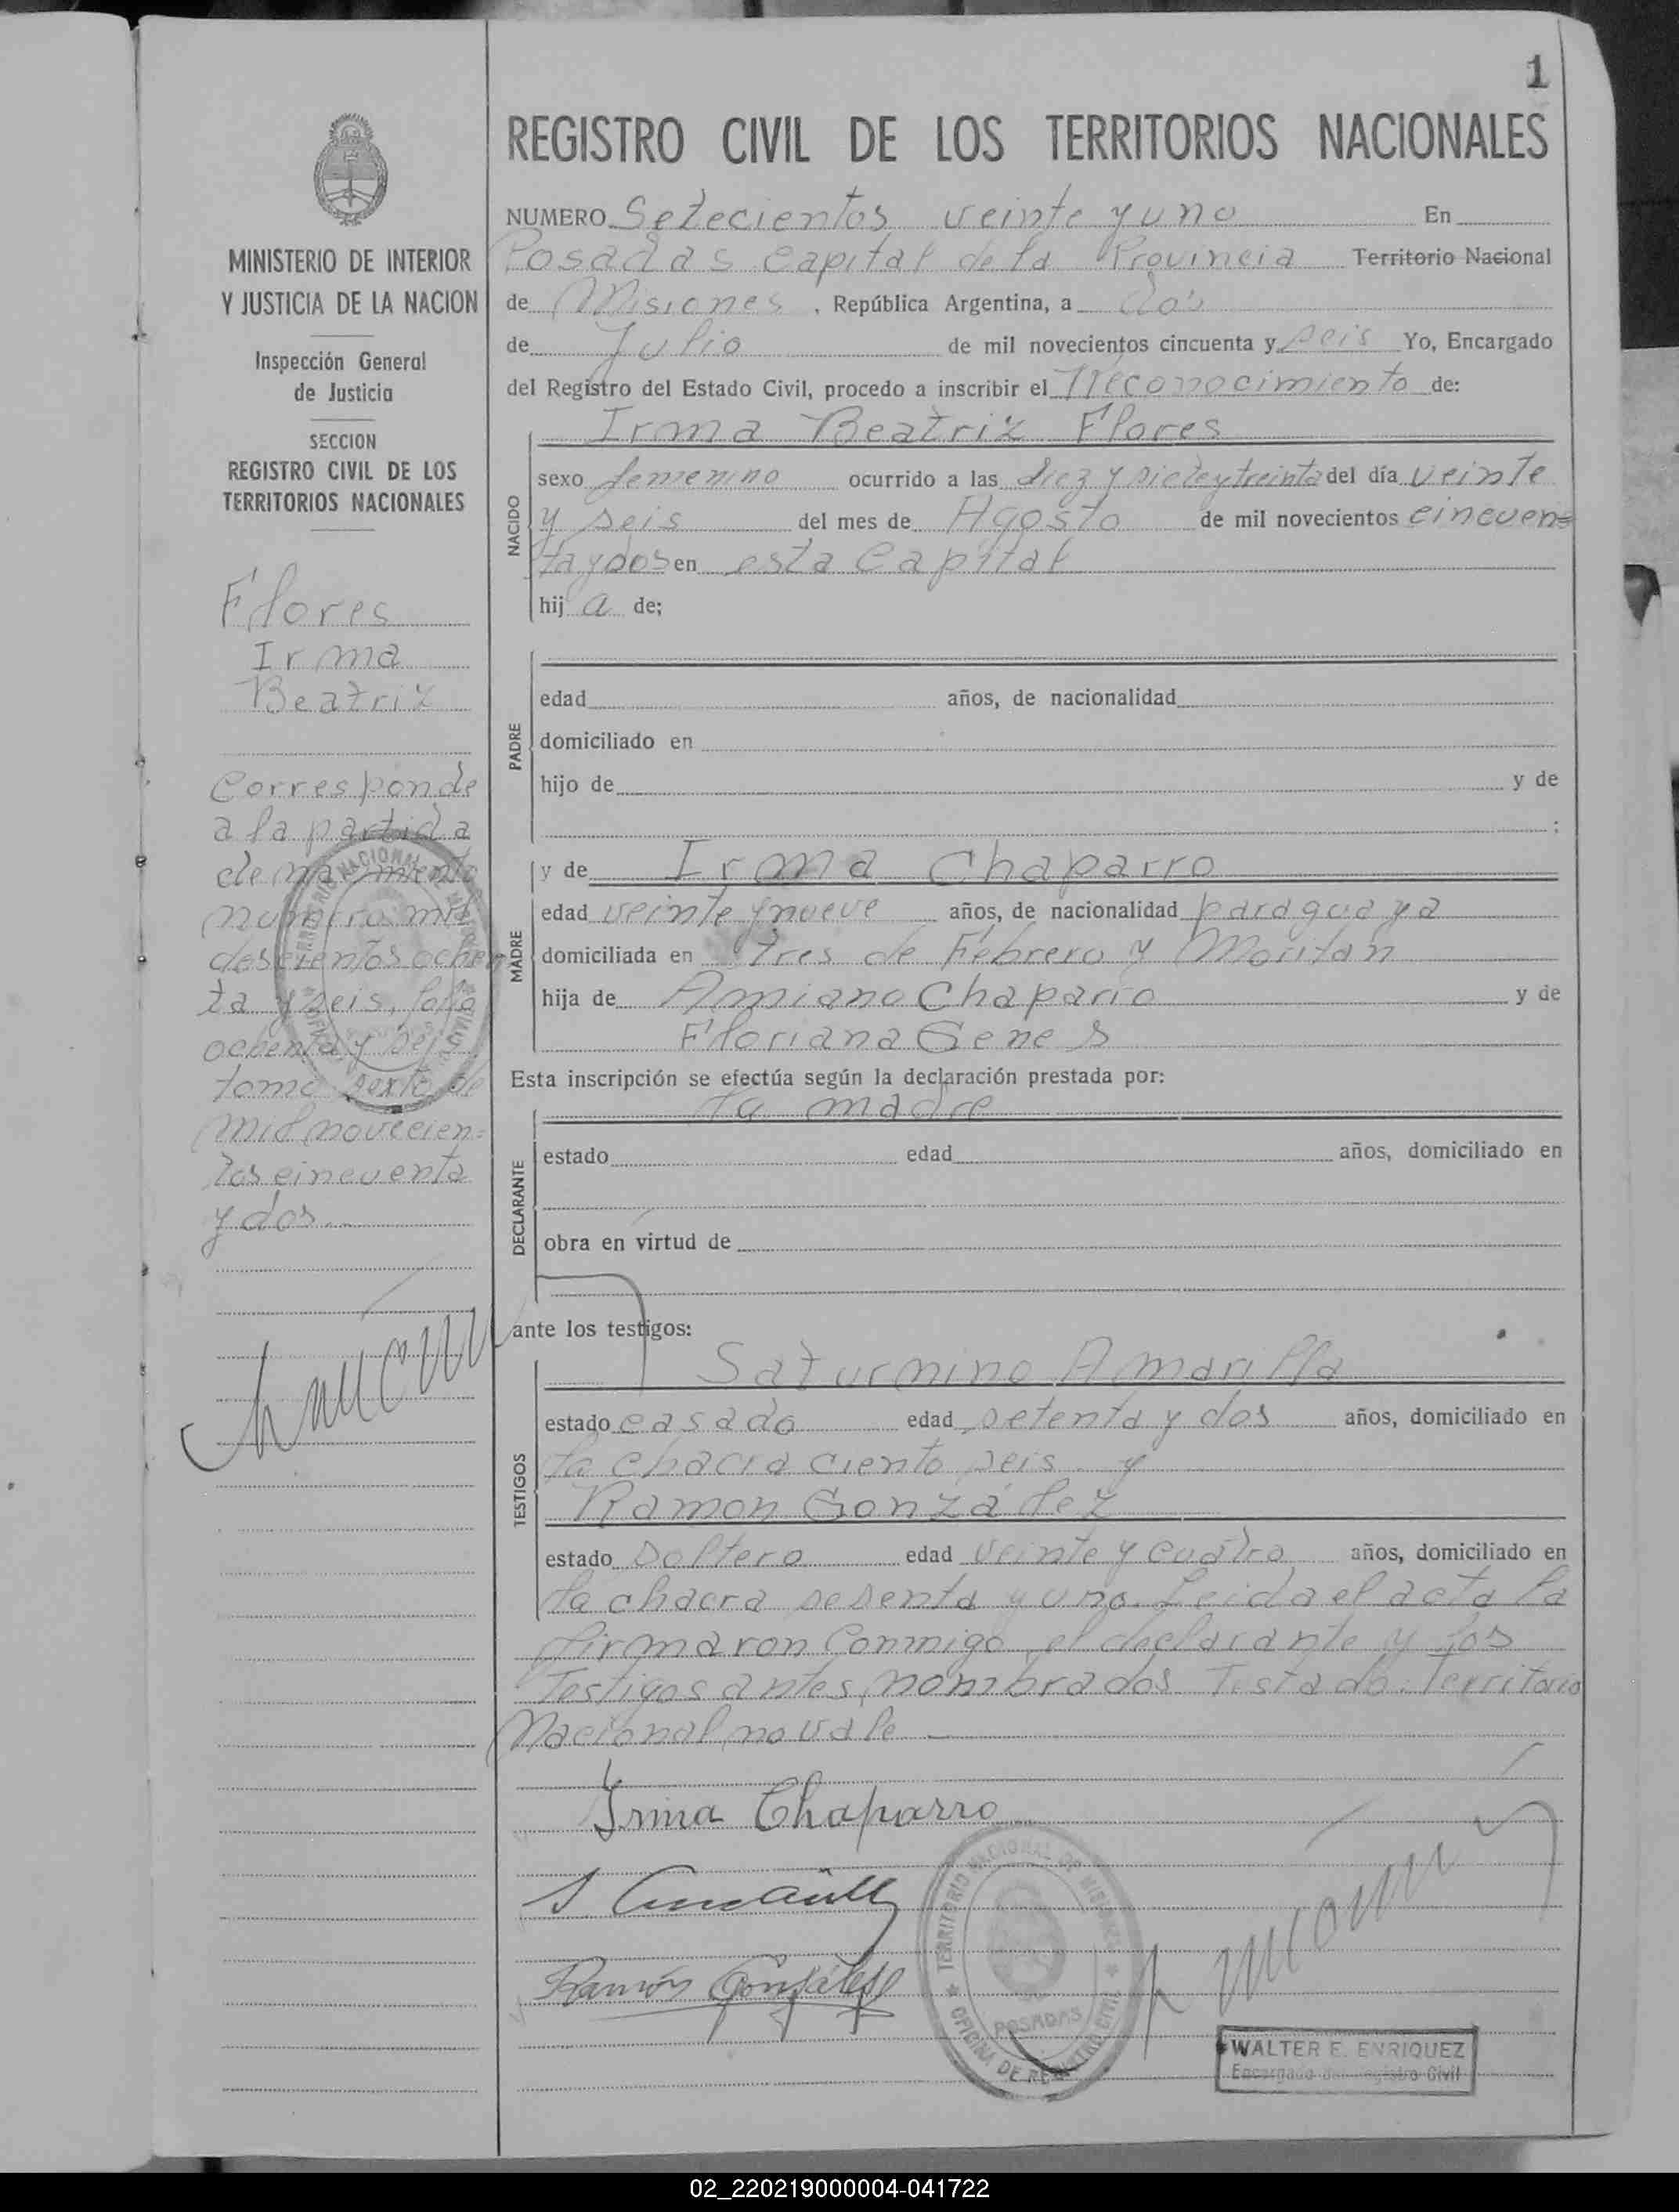 1
REGISTRO CIVIL DE LOS TERRITORIOS NACIONALES
MINISTERIO DE INTERIOR
Y JUSTICIA DE LA NACION
Inspección General
de Justicia
SECCION
REGISTRO CIVIL DE LOS
TERRITORIOS NACIONALES
Flores
Irma
Beatriz
Corresponde
a la partida
de nacimiento
numero mil
descientos ochen
ta y seis, folio
ochenta y seis
tomo sexto de
mil novecien=
tos cincuenta
y dos
NUMERO Setecientos veinte y uno En
Posadas Capital de la Provincia Territorio Nacional
de Misiones, República Argentina, a dos
de Julio de mil novecientos cincuenta y seis Yo, Encargado
del Registro del Estado Civil, procedo a inscribir el Reconocimiento de:
Irma Beatriz Flores
NACIDO
sexo femenino ocurrido a las diez y siete y treinta del día veinte
y seis del mes de Agosto de mil novecientos cincuen=
ta y dos en esta Capital
hij a de;
PADRE
edad años, de nacionalidad
domiciliado en
hijo de y de
;
MADRE
y de Irma Chaparro
edad veinte y nueve años, de nacionalidad paraguaya
domiciliada en tres de Febrero y Moritan
hija de Amiano Chaparro y de
Floriana Genes
Esta inscripción se efectúa según la declaración prestada por:
la madre
DECLARANTE
estado edad años, domiciliado en
obra en virtud de
ante los testigos:
TESTIGOS
Saturnino Amarilla
estado casado edad setenta y dos años, domiciliado en
la chacra ciento seis y
Ramon González
estado soltero edad veinte y cuatro años, domiciliado en
la chacra sesenta y uno. Leida el acta la
firmaron conmigo el declarante y los
Testigos antes nombrados Testado: Territorio
Nacional no vale
Irma Chaparro
S Amarilla
Ramón González
TERRITORIO NACIONAL DE MISIONES
POSADAS
OFICINA DE REGISTRO CIVIL
WALTER E. ENRIQUEZ
Encargado del Registro Civil
02_220219000004-041722